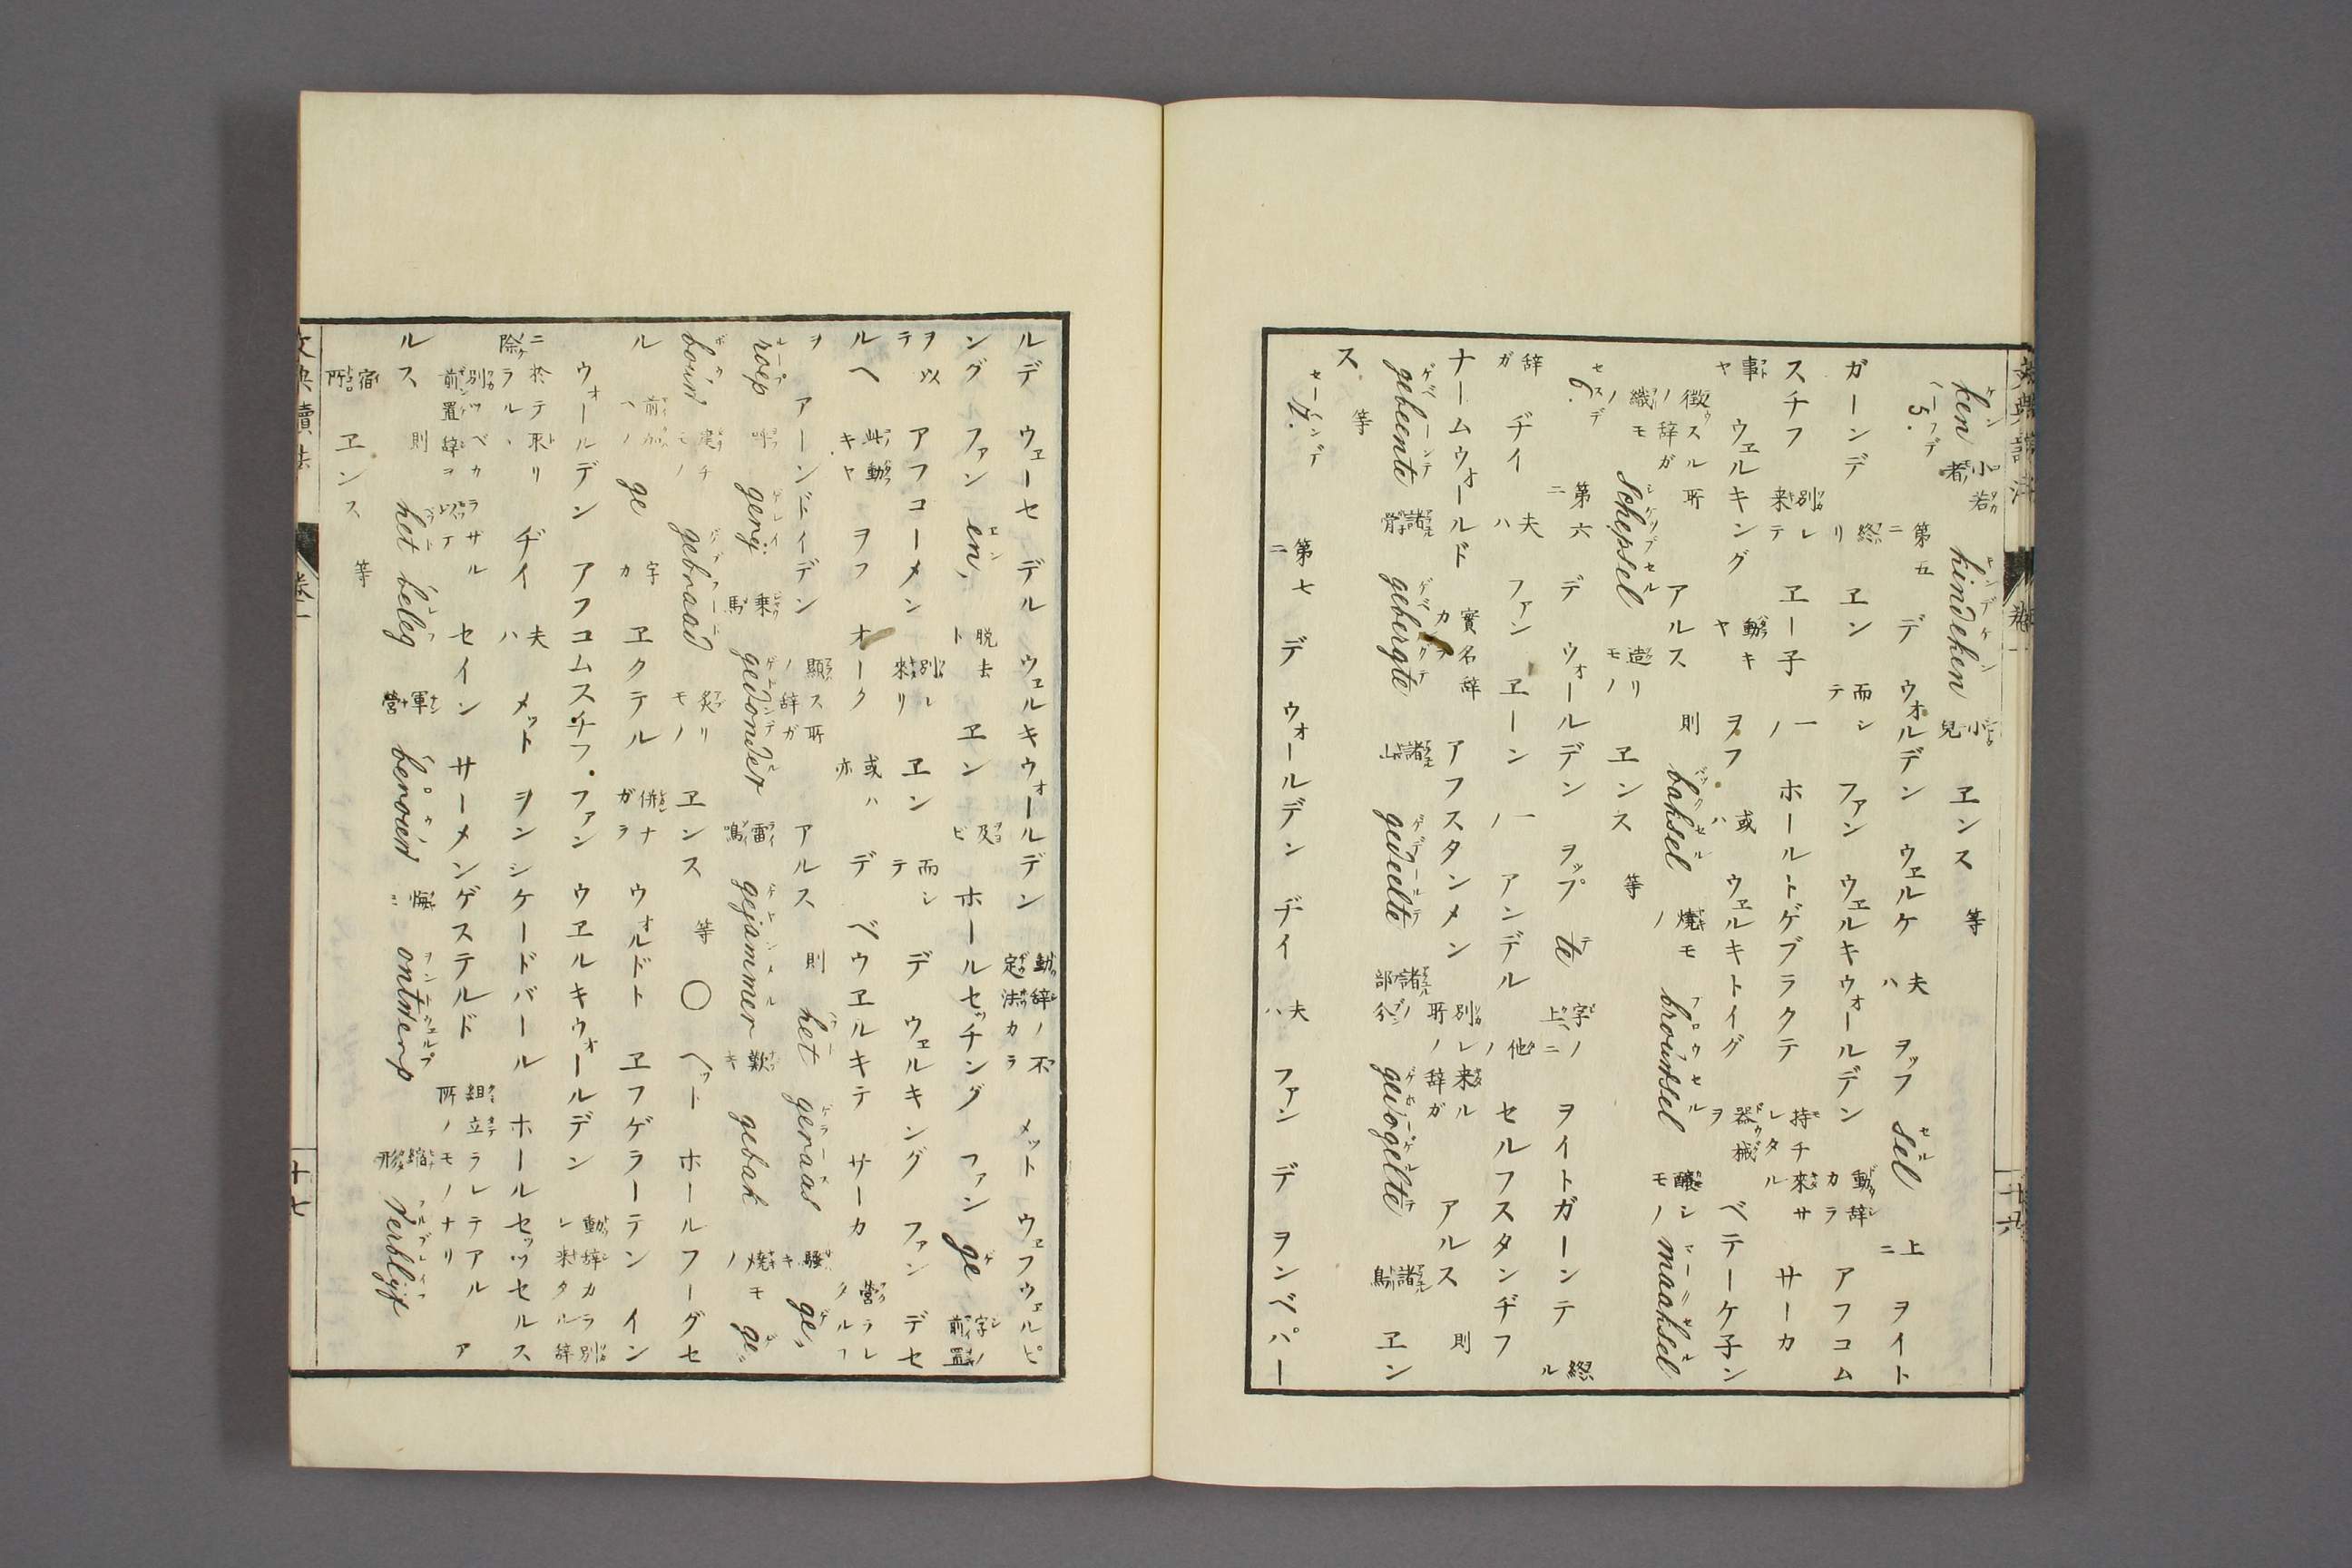 ken 小若者 kindeken 小児 エンス 等
5. 第五ニ デ ウォルデン ウェルケ 夫ハ ヲッフ sel 上ニ ヲイト
ガーンデ 終リ エン 而シテ ファン ウェルキウォールデン 動辞カラ アフコム
スチフ 別レ来テ エー子 一ノ ホールトゲブラクテ 持チ来サレタル サーカ
事ヤ ウェルキング 動キヤ ヲフ 或ハ ウェルキトイグ 器械ヲ ベテーケ子ン
徴スル所ノ辞ガ織ノモ アルス 則 baksel 焼モノ brouwsel 醸シモノ maaksel
schepsel 造リモノ エンス 等
6. 第六ニ デ ウォールデン ヲップ te 字ノ上ニ ヲイトガーンテ 終ル
辞ガ ヂイ 夫ハ ファン エーン 一ノ アンデル 他ノ セルフスタンヂフ
ナームウォールド 實名辞カラ アフスタンメン 別レ来ル所ノ辞ガ アルス 則
gebeente 諸骨 gebergte 諸山 gedeelte 諸部分 gevogelte 諸鳥 エン
ス 等
7. 第七ニ デ ウォールデン ヂイ 夫ハ ファン デ ヲンベパー
ルデ ウェーセ デル ウェルキウォールデン 動辞ノ不定法カラ メット ウェフウェルピ
ング ファン en, 脱去ト エン 及ビ ホールセッチング ファン ge 字ノ前置
ヲ以テ アフコーメン 別レ來リ エン 而シテ デ ウェルキング ファン デセ
ルヘ 此動キヤ ヲフ オーク 或ハ亦 デ ベウエルキテ サーカ 營ラレタルフ
ヲ アーンドイデン 顯ス所ノ辞ガ アルス 則 het geraas 騒キ ge„
roep gerij 乗馬 gedonder 雷鳴 gejammer 歎キ gebak 焼モノ ge„
bouw 建チモノ gebraad 炙リモノ エンス 等 〇 ヘット ホールフーグセ
ル 前ヘノ加 ge 字カ エクテル 併ナガラ ウォルドト エフゲラーテン イン
ウォールデン アフコムスチフ ファン ウエルキウォールデン 動辞カラ別レ来タル辞
ニ於テ取リ除ケラルヽ ヂイ 夫ハ メット ヲンシケードバール ホールセッツセルス
別ツベカラザル前置辞ヲ以テ セイン サーメンゲステルド 組立ラレテアル所ノモノナリ ア
ルス 則 het beleg 軍營 berouw 悔ミ ontwerp 縮形 verblijf
宿所 エンス 等